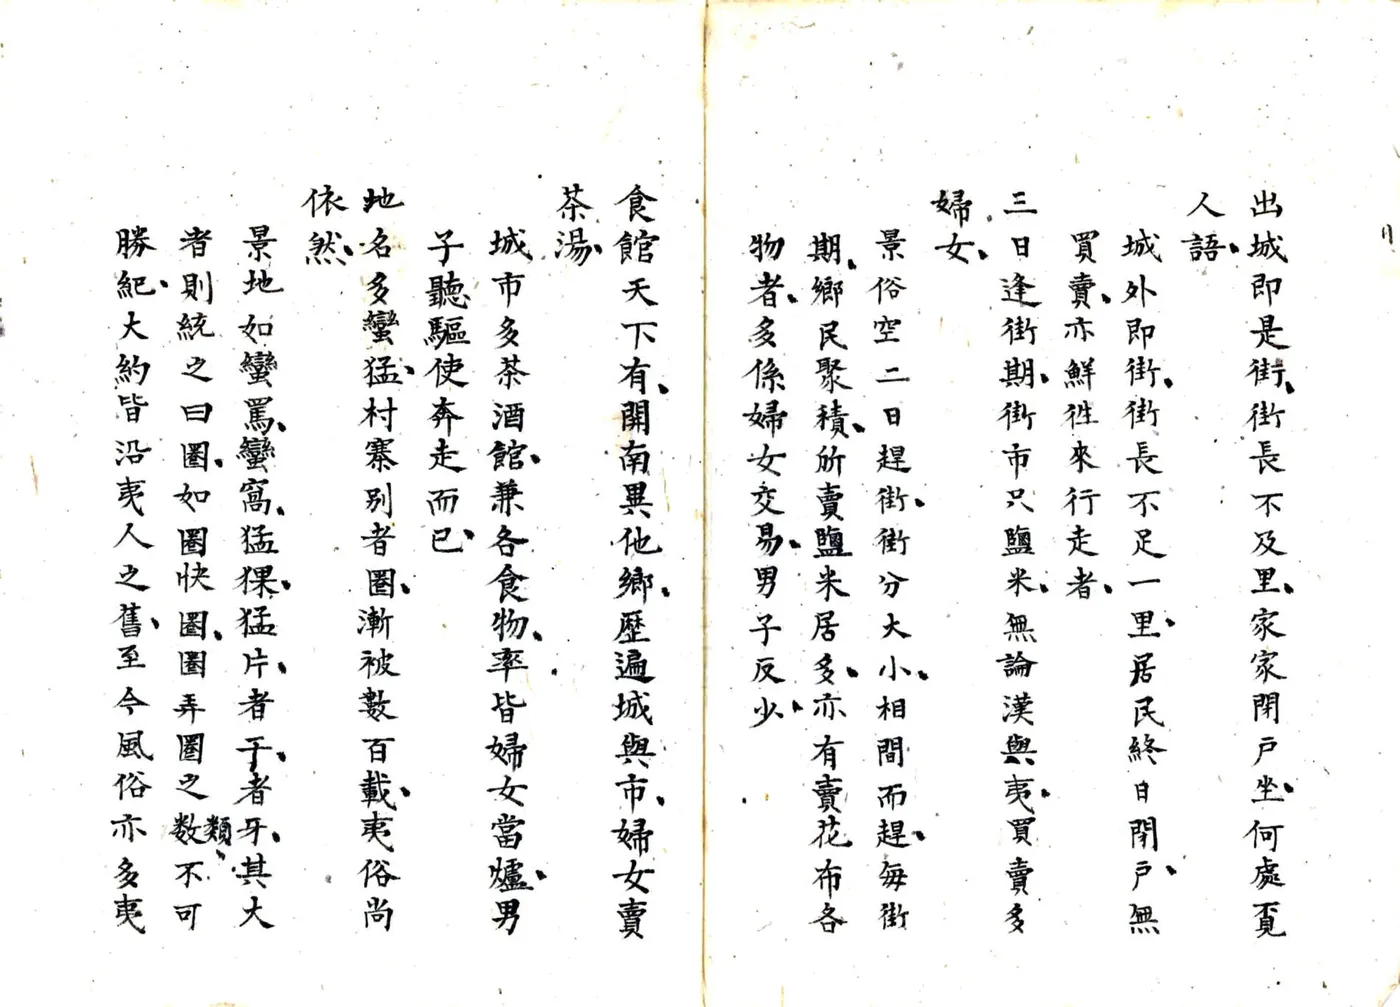 出城即是街、街長不及里、家家閉戶坐、何處覔
人語、
城外即街、街長不足一里、居民終日閉戶、無
買賣、亦鮮徃來行走者、
三日逢街期、街市只鹽米、無論漢與夷、買賣多
婦女、
景俗空二日趕街、街分大小、相間而趕、每街
期、鄉民聚積、所賣鹽米居多、亦有賣花布各
物者、多係婦女交易、男子反少、
食館天下有、開南異他鄉、歷遍城與市、婦女賣
茶湯、
城市多茶酒館、兼各食物、率皆婦女當爐、男
子聽驅使奔走而已、
地名多蠻猛、村寨別者圈、漸被數百載、夷俗尚
依然、
景地如蠻罵、蠻窩、猛猓、猛片、者干、者牙、其大
者則統之曰圈、如圈快圈、圈弄圈之数類、不可
勝紀、大約皆沿夷人之舊、至今風俗亦多夷